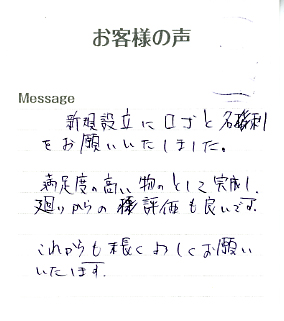 お客様の声
Message
新規設立にロゴと名刺
をお願いいたしました。
満足度の高い物のとして完成し、
廻りからの 評価も良いです。
これからも長くよろしくお願い
いたします。